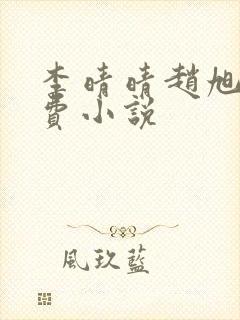 李晴晴趙旭
費小説
風玖藍